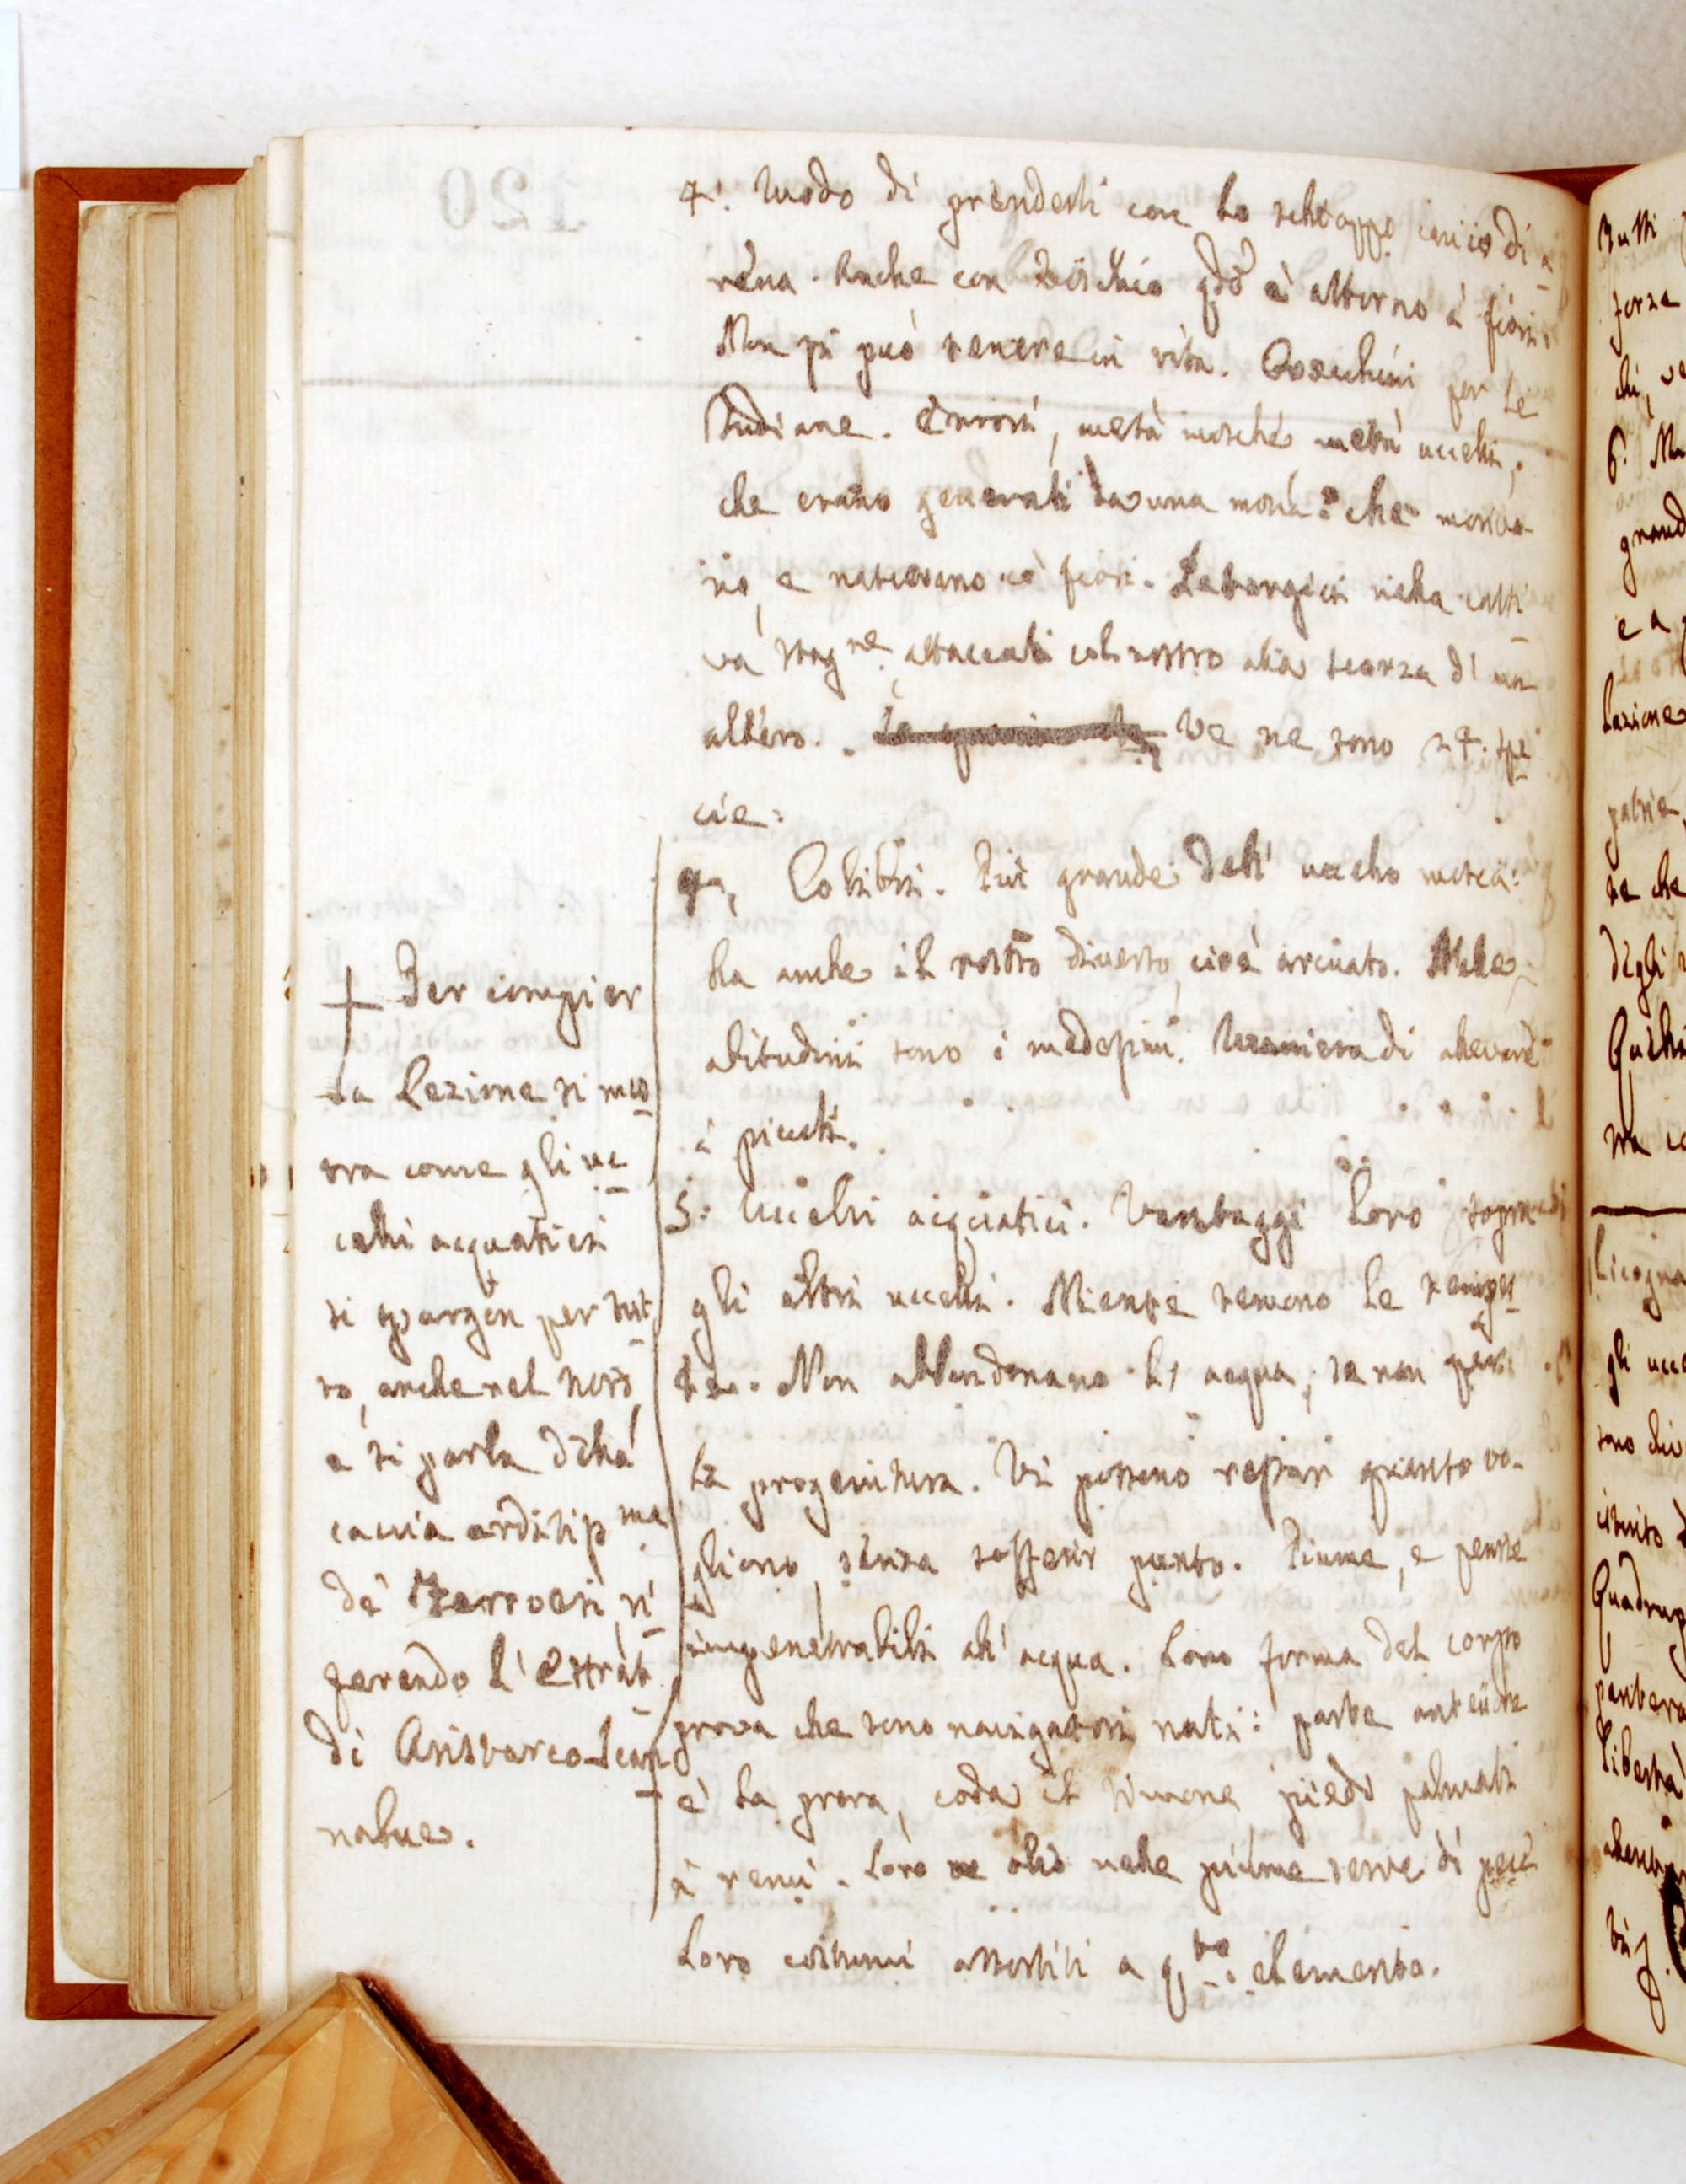 4.° Modo di prenderli con lo schioppo carico di a
rena. Anche con vischio qdo è attorno a' fiori.
Non si può tenere in vita. Orecchini per le
Indiane. Errori, metà mosche metà uccelli,
che erano generati da una mosca: che moriva-
no, e nascevano co' fiori. Letargici nella catti
va stagne. attaccati col rostro alla scorza di un
albero. Ve ne sono 24. spe
cie:
Colibri. Più grande dell' uccello mosca:
ha anche il rostro diverso, cioè arcuato. Nelle
abitudini sono i medesimi. Maniera di allevare
i piccoli.
5.° Uccelli acquatici. Vantaggi loro sopra
gli altri uccelli. Niente temono le tempes
te. Non abbandonano l' acqua, se non per
la progenitura. Vi possono restar quanto vo-
gliono, senza soffrir punto. Piume, e penne
impenetrabili all' acqua. Loro forma del corpo
prova che sono navigatori nati: parte anteriore
è la prora, coda il timone, piedi palmati
i remi. Loro olio nelle piume serve di pece
Loro costumi assortiti a qto. elemento.
† Per compier
la Lezione si mos
tra come gli uc
celli acquatici
si spargon per tut
to, anche nel Nord,
e si parla della
caccia arditissma.
de' Farroesi, ri
ferendo l' Estrat.
di Aristarco Scan
nabue.
Tutti
forza
chi, ve
6.°
grand
e a
lazione
patrie
te che
degli
Quelli
tra co
gli ucc
Quadrup
pantera
libertà
120